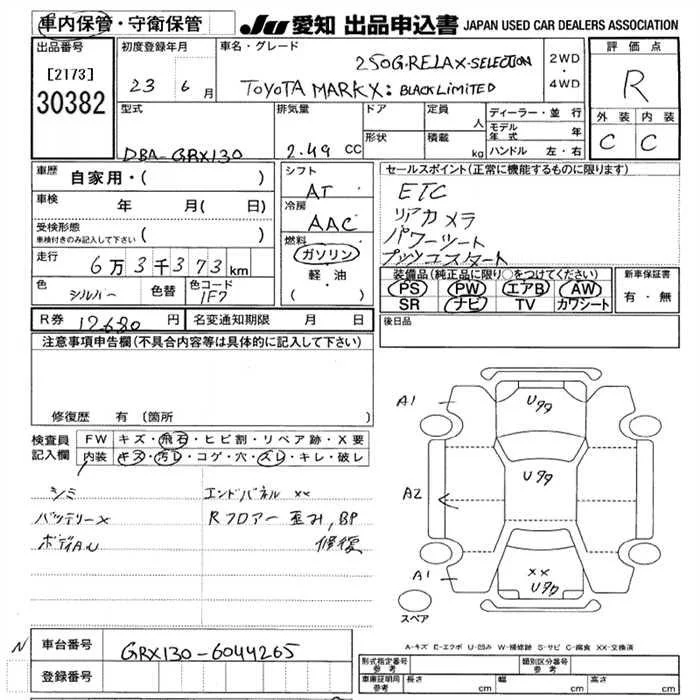 車内保管・守衛保管
JU 愛知 出品申込書 JAPAN USED CAR DEALERS ASSOCIATION
出品番号
[2173]
30382
初度登録年月
23 6月
車名・グレード
250G.RELAX-SELECTION
TOYOTA MARKX: BLACK LIMITED
2WD
・
4WD
評価点
R
外装 内装
C C
型式
DBA-GRX130
排気量
2.49 CC
ドア
形状
定員 人
積載 kg
ディーラー・並行
モデル年式 年
ハンドル 左・右
車歴
自家用・( )
車検 年 月( 日)
受検形態
車検付きのみ記入して下さい ( )
走行 6万3千373km
色 シルバー 色替 色コード 1F7
シフト
AT
冷房
AAC
燃料
ガソリン
軽・油
・( )
セールスポイント(正常に機能するものに限ります)
ETC
リアカメラ
パワーシート
プッシュスタート
装備品(純正品に限り○をつけてください)
PS PW エアB AW
SR ナビ TV カワシート
新車保証書
有・無
R券 12680 円 名変通知期限 月 日
後日品
注意事項申告欄(不具合内容等は具体的に記入して下さい)
修復歴 有(箇所 )
検査員記入欄
FW キズ・飛石・ヒビ割・リペア跡・X要
内装 キズ・汚レ・コゲ・穴・スレ・キレ・破レ
シミ エンドパネル xx
バッテリーx Rフロアー歪み,BP
ボディAU 修復
A1
Uタタ
A2
Uタタ
A1
xx
Uタタ
スペア
A-キズ E-エクボ U-凹み W-補修跡 S-サビ C-腐食 XX-交換済
N
車台番号 GRX130-6044265
登録番号
形式指定番号 参考
類別区分番号 参考
車庫証明用 参考
長さ cm 幅 cm 高さ cm